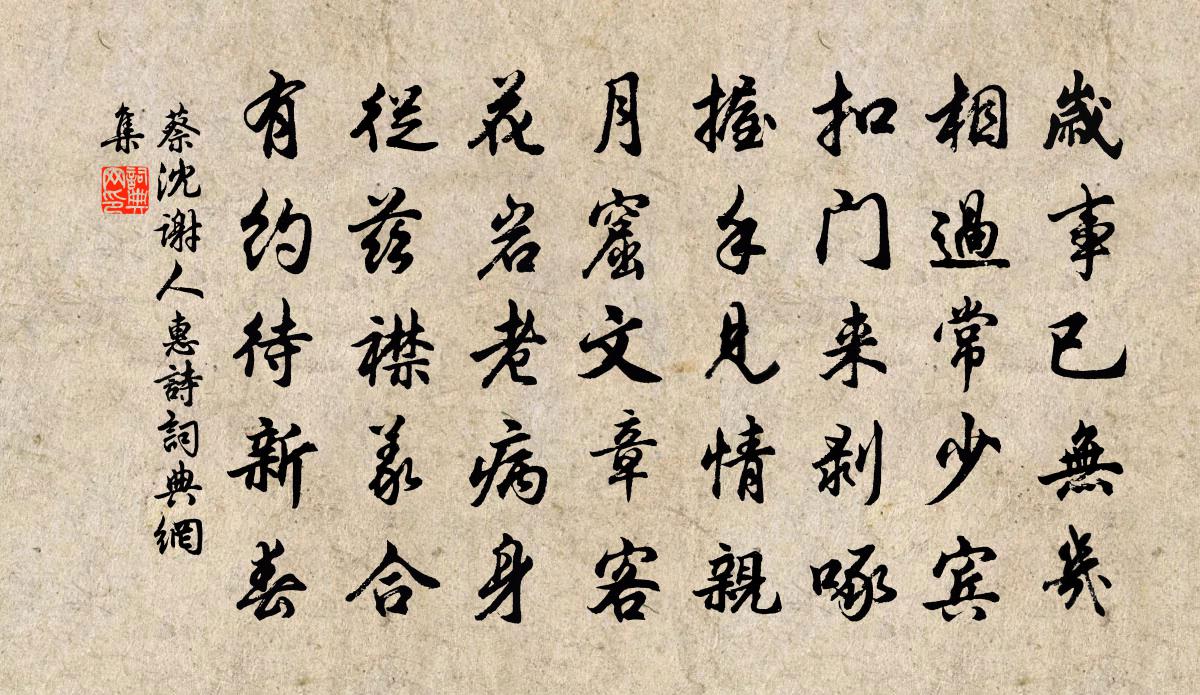 歲事已無幾
相過常少賓
扣门来剥啄
握手見情親
月窟文章客
花岩老病身
從茲襟義合
有約待新春
蔡沈謝人惠詩詞典網
集
詞典
网印